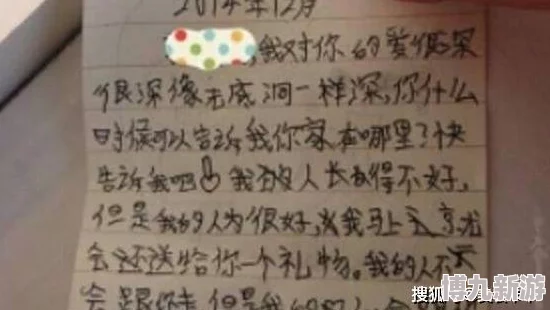 2014年12月
,我对你的爱很深
很深像无底洞一样深,你什么
时候可以告诉我你家在哪里了快
告诉我吧 我的人长得不好,
但是我的人为很好,我马上去京尤
会还送给你一个礼物。我的人不
会跟你走,但是我的
搜狐
博九新游